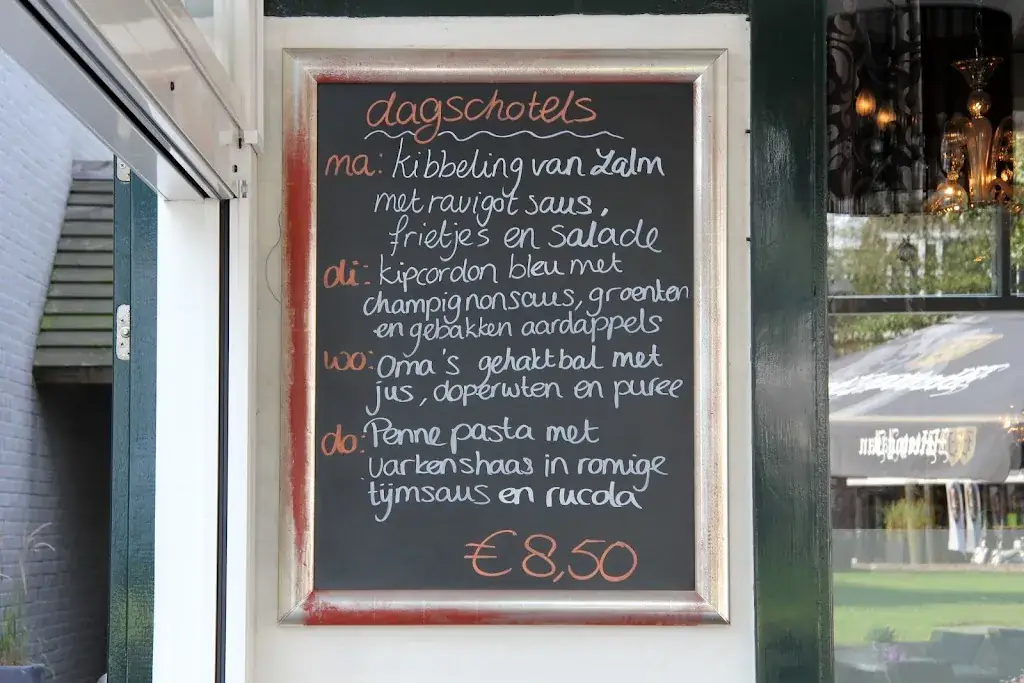 dagschotels
ma: kibbeling van Zalm
met ravigot saus,
frietjes en salade
di: kipcordon bleu met
champignonsaus, groenten
en gebakken aardappels
wo: Oma's gehaktbal met
jus, doperwten en puree
do: Penne pasta met
varkenshaas in romige
tijmsaus en rucola
€8,50